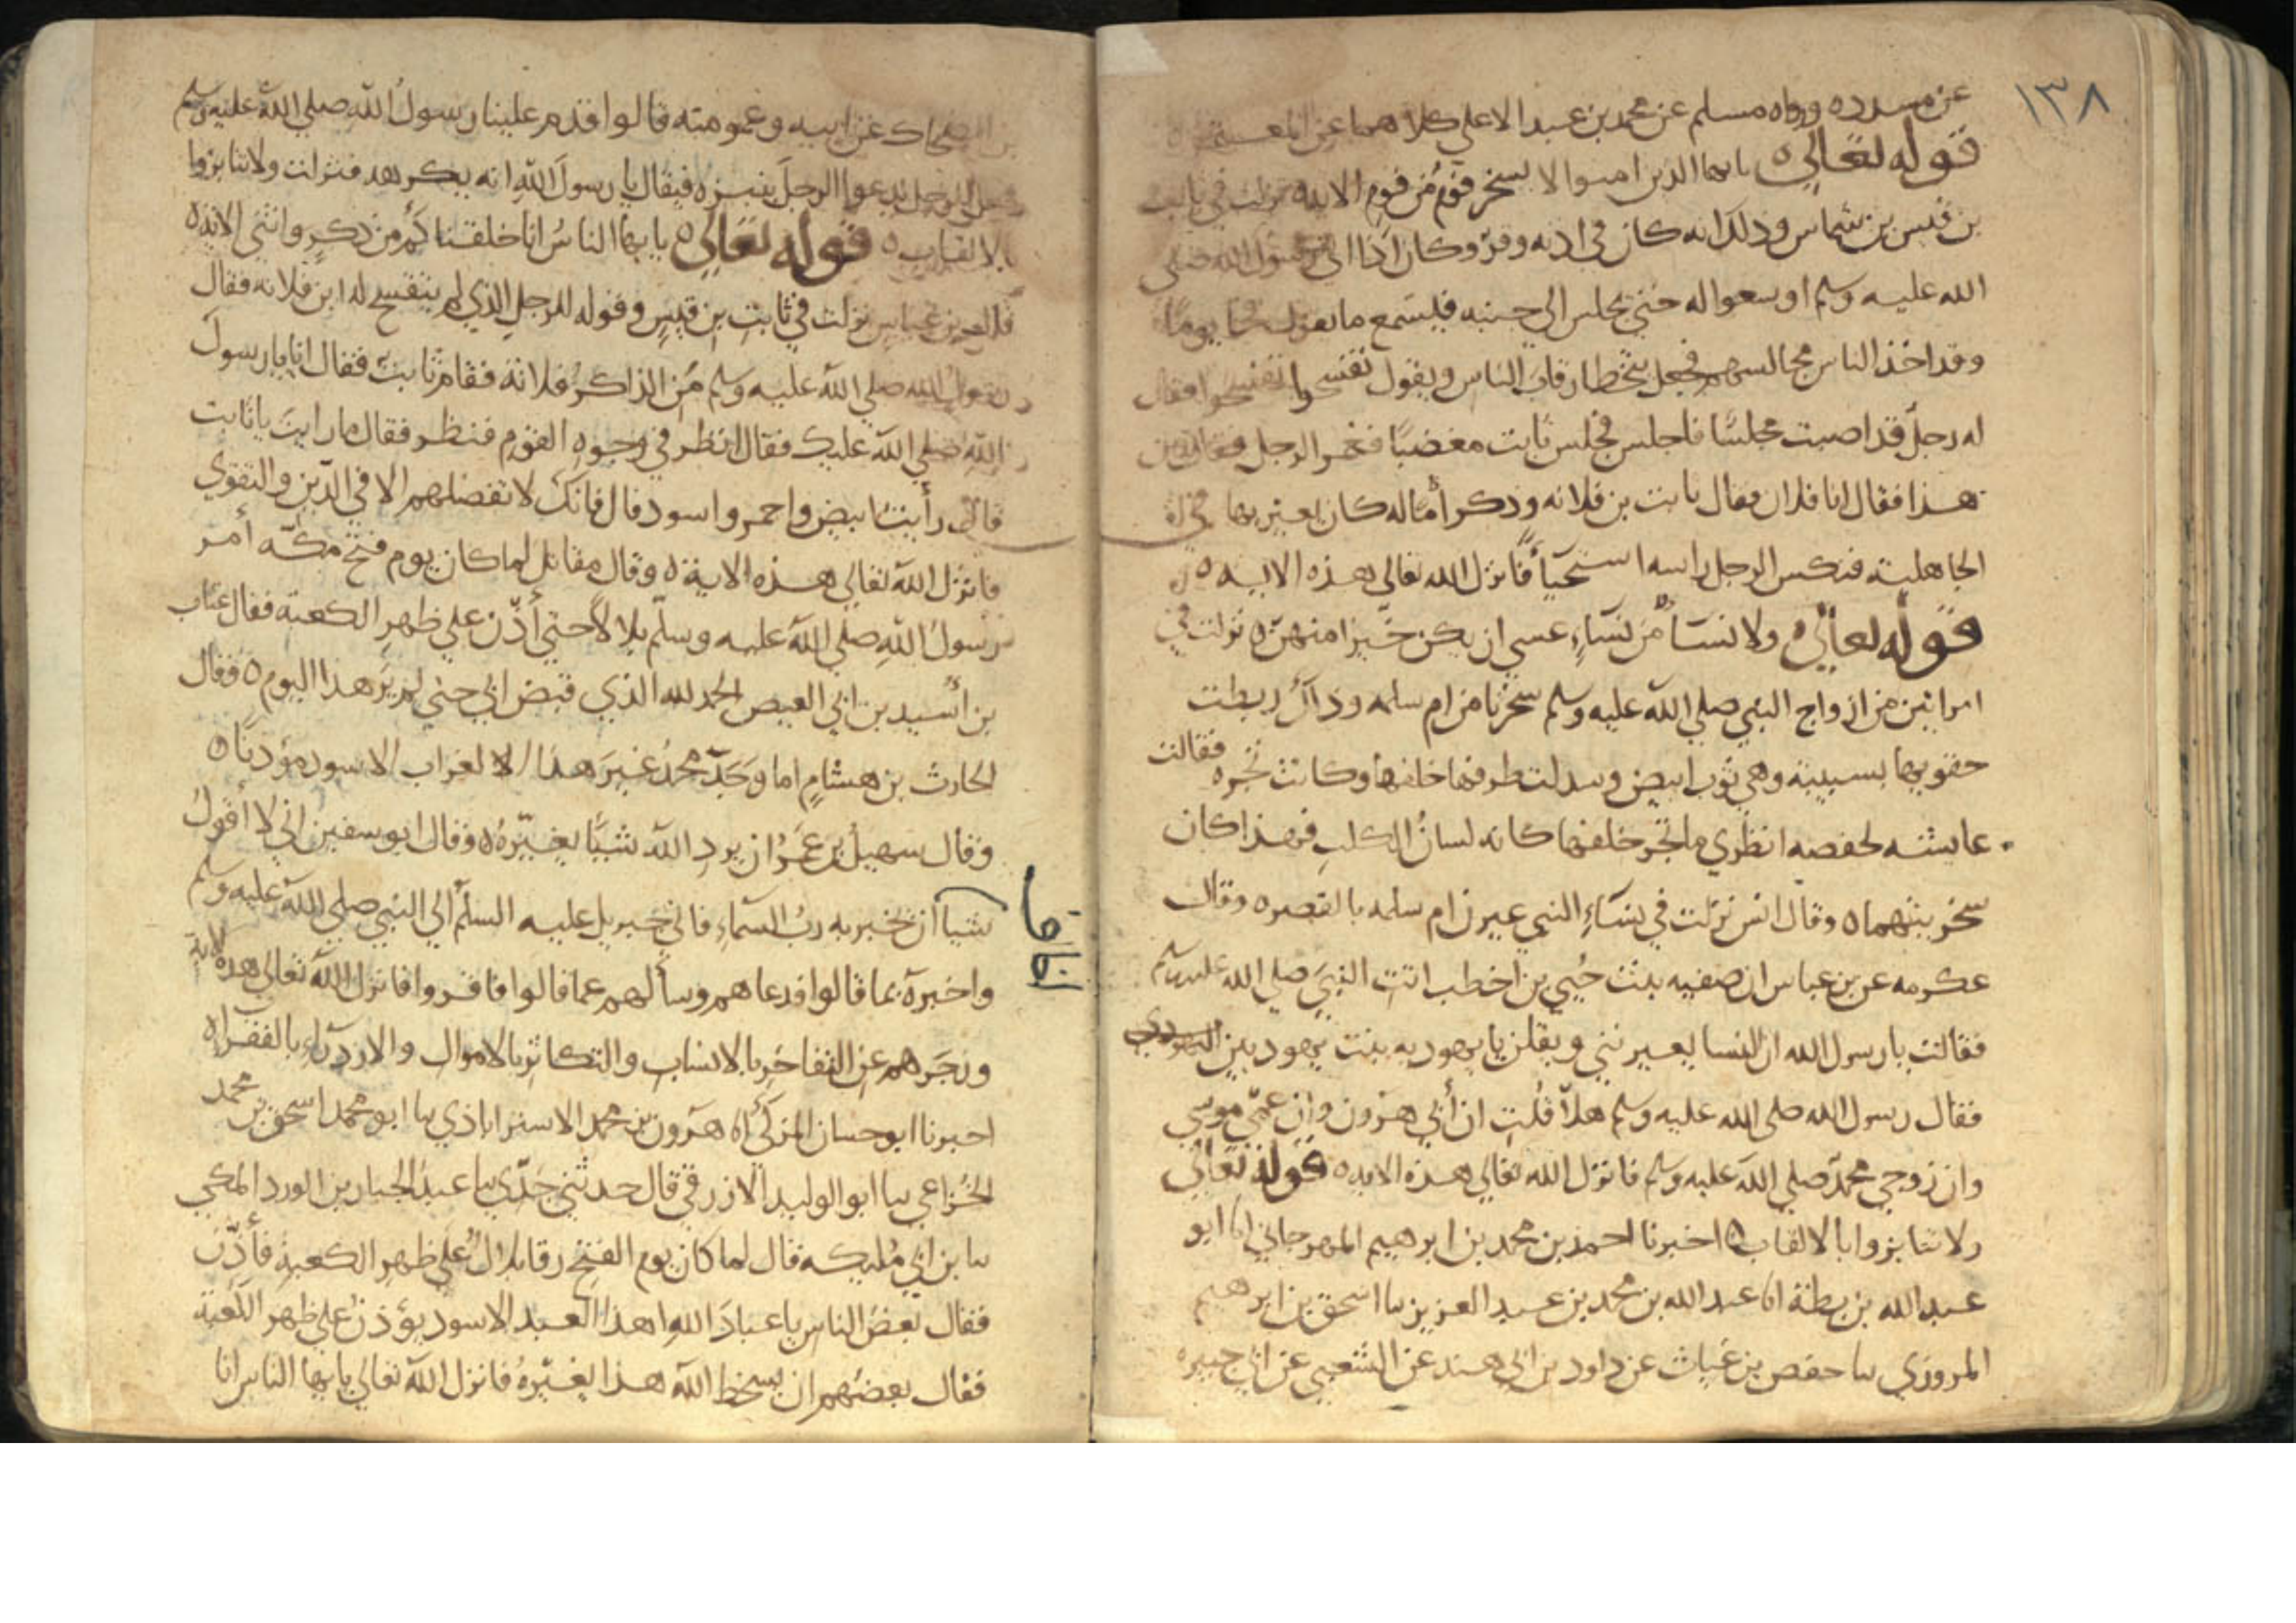 ١٣٨
عن مسدد ٥ ورواه مسلم عن محمد بن عبد الاعلي كلاهما عن المعتمر ٥
قوله تعالى ٥ يايها الذين امنوا لا يسخر قوم من قوم الايه ٥ نزلت في ثابت
بن قيس بن شماس وذلك انه كان في اذنه وقر وكان اذا اتي رسول الله صلي
الله عليه وسلم اوسعوا له حتي يجلس الي جنبه فيسمع ما يقول فجا يومًا
وقد اخذ الناس مجالسهم فجعل يتخطا رقاب الناس ويقول تفسحوا تفسحوا فقال
له رجل قد اصبت مجلسًا فاجلس فجلس ثابت مغضبًا فغمز الرجل فقال من
هذا فقال انا فلان فقال ثابت بن فلانه وذكر أمًا له كان يعير بها في
الجاهلية فنكس الرجل راسه استحيآً فانزل الله تعالى هذه الايه ٥
قوله تعالى ٥ ولا نسآ من نسآءٍ عسي ان يكن خيرا منهن ٥ نزلت في
امراتين من ازواج النبي صلي الله عليه وسلم سخرتا من ام سلمه وذلك ربطت
حقويها بسبيبة وهي ثوب ابيض وسدلت طرفها خلفها وكانت تجره فقالت
عايشه لحفصه انظري ما تجر خلفها كانه لسان الكلب فهذا كان
سخريتهما ٥ وقال انس نزلت في نسآءِ النبي عيرن ام سلمه بالقصر ٥ وقال
عكرمه عن بن عباس ان صفيه بنت حُيي بن اخطب اتت النبيَ صلي الله عليه وسلم
فقالت يا رسول الله ان النسا يعيرنني ويقلن يا يهوديه بنت يهوديين
فقال رسول الله صلى الله عليه وسلم هلا قلت ان أبي هرون وان عمي موسي
وان زوجي محمد صلي الله عليه وسلم فانزل الله تعالي هذه الايه ٥ قوله تعالى
ولا تنابزوا بالالقاب ٥ اخبرنا احمد بن محمد بن ابرهيم المهرجاني انا ابو
عبد الله بن بطة انا عبد الله بن محمد بن عبد العزيز نا اسحق بن ابرهيم
المروزي نا حفص بن غياث عن داود بن ابي هند عن الشعبي عن ابي جبيره
بن الضحاك عن ابيه وعمومته قالوا قدم علينا رسول الله صلي الله عليه وسلم
فجعل الرجل يدعوا الرجل ينبزه فيقال يا رسول الله انه يكرهه فنزلت ولا تنابزوا
بالالقاب ٥ قوله تعالى ٥ يايها الناس انا خلقناكم من ذكر وانثي الاية ٥
قال بن عباس نزلت في ثابت بن قيس وقوله للرجل الذي لم يتفسح له ابن فلانه فقال
رسول الله صلي الله عليه وسلم من الذاكر فلانة فقام ثابت فقال انا يا رسول
الله صلي الله عليك فقال انظر في وجوه القوم فنظر فقال ما رايت يا ثابت
قال رأيت ابيض واحمر واسود قال فانك لا تفضلهم الا في الدين والتقوي
فانزل الله تعالي هذه الاية ٥ وقال مقاتل لما كان يوم فتح مكة أمر
رسول الله صلي الله عليه وسلم بلالا حتي أذن علي ظهر الكعبة فقال عتاب
بن أسيد بن ابي العيص الحمد لله الذي قبض ابي حتي لم ير هذا اليوم ٥ فقال
الحارث بن هشام اما وجد محمد غير هذا الا لغراب الاسود مؤذنًا ٥
وقال سهيل بن عمرو ان يرد الله شيًا يغيره ٥ وقال ابو سفين اني لا أقول
شيأ أن يخبر به رب السمآءِ فاتي جبريل عليه السلم الي النبي صلي الله عليه وسلم
واخبره بما قالوا فدعاهم وسألهم عما قالوا فاقروا فانزل الله تعالي هذه الاية
وزجرهم عن التفاخر بالانساب والتكاثر بالاموال والازدرآءِ بالفقرآ ٥
اخبرنا ابو حسان المزكي انا هرون بن محمد الاستراباذي نا ابو محمد اسحق بن محمد
الخزاعي نا ابو الوليد الازرقي قال حدثني جدي نا عبد الجبار بن الورد المكي
نا بن ابي مليكه قال لما كان يوم الفتح رقا بلال علي ظهر الكعبة فأذن
فقال بعض الناس يا عباد الله اهذا العبد الاسود يؤذن علي ظهر الكعبة
فقال بعضهم ان يسخط الله هذا يغيره فانزل الله تعالي يايها الناس انا